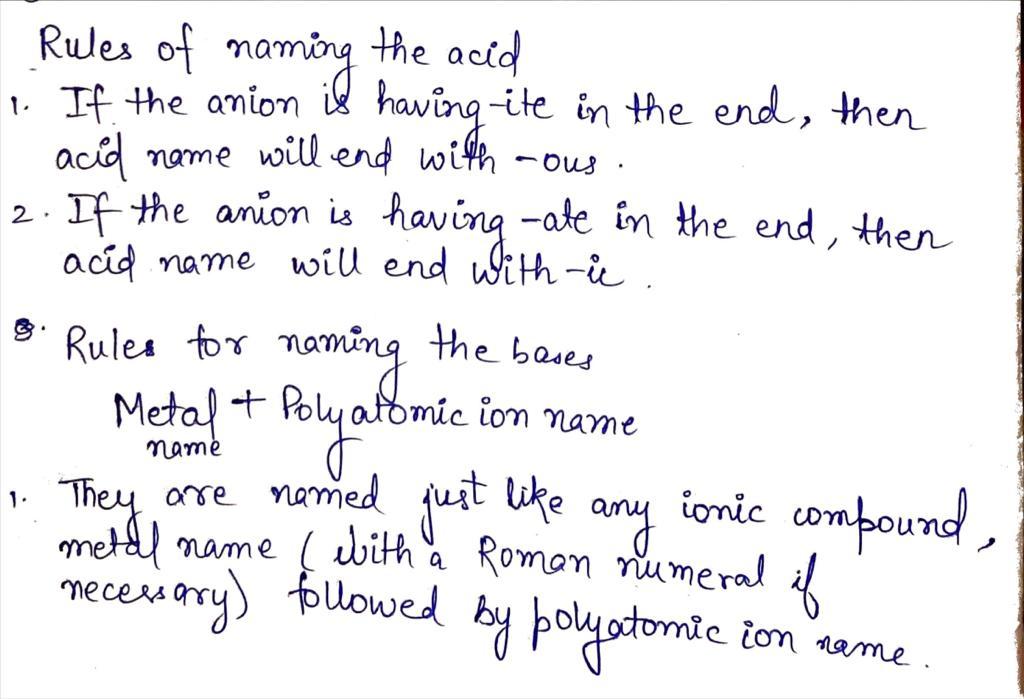 Rules of naming the acid
1. If the anion is having -ite in the end, then
acid name will end with -ous.
2. If the anion is having -ate in the end, then
acid name will end with -ic.
Rules for naming the bases
Metal + Polyatomic ion name
name
1. They are named just like any ionic compound,
metal name (with a Roman numeral if
necessary) followed by polyatomic ion name.